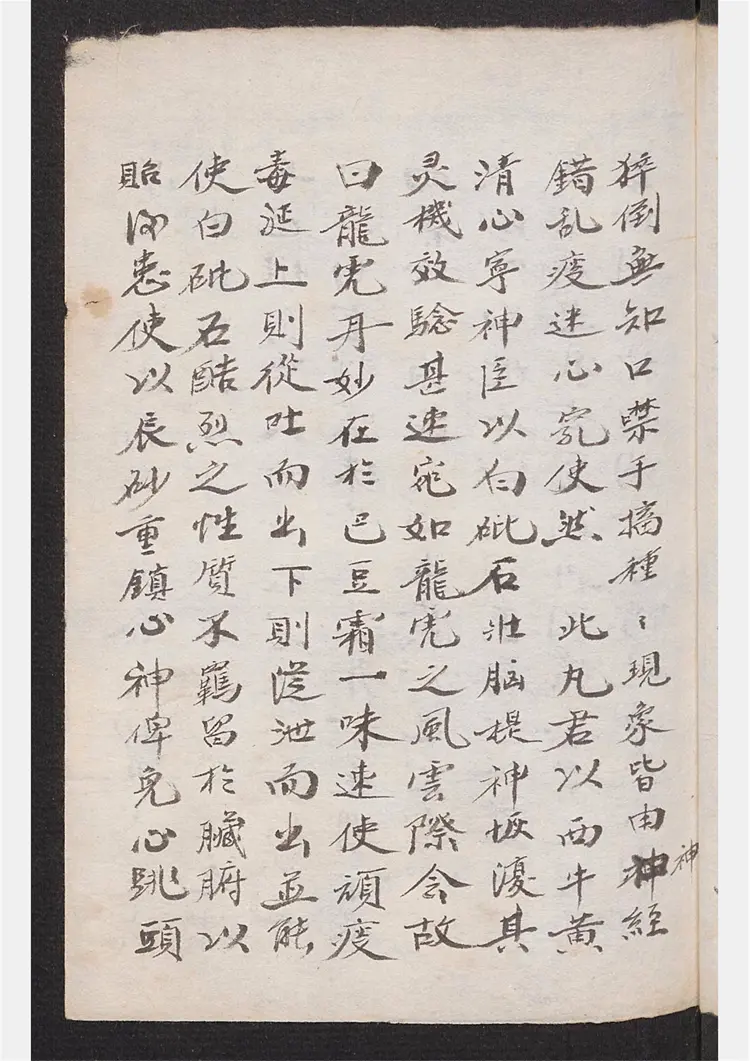 猝倒無知口噤手搐種〻現象皆由神經
錯乱痰迷心竅使然 此丸君以西牛黄
清心寧神臣以白砒石壯脑提神恢復其
灵機效騐甚速宛如龍虎之風雲際会故
曰龍虎丹妙在於巴豆霜一味速使頑痰
毒涎上則從吐而出下則從泄而出並能
使白砒石酷烈之性質不羈留於臟腑以
貽後患使以辰砂重鎮心神俾免心跳頭
神